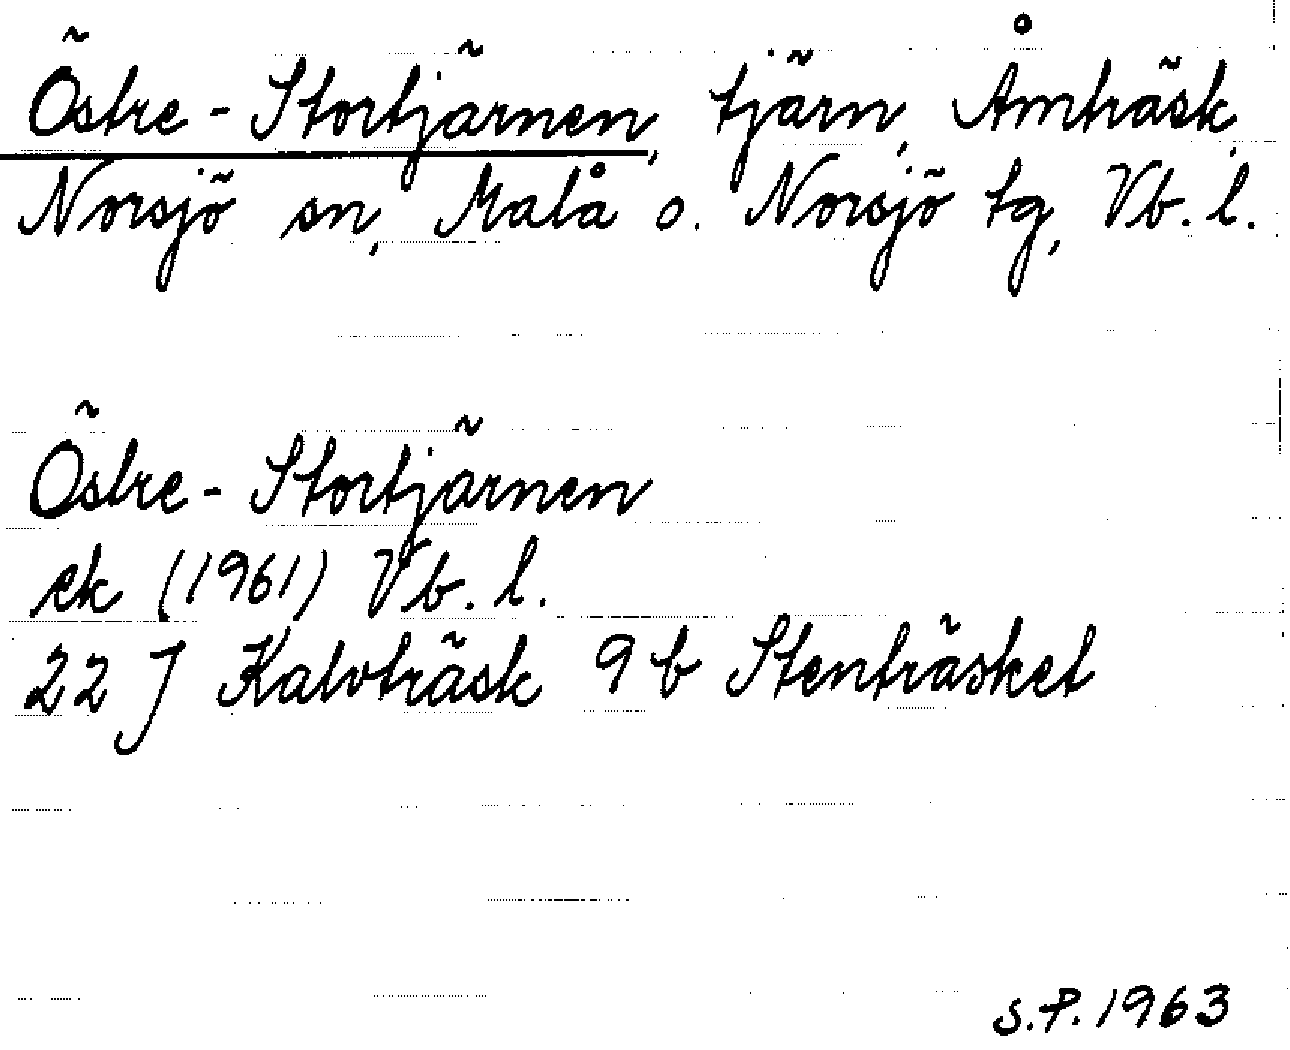 Östre-Stortjärnen, tjärn, Åmträsk,
Norsjö sn, Malå o. Norsjö tg, Vb. l.
Östre-Stortjärnen
ek (1961) Vb. l.
22 J Kalvträsk 9 b Stenträsket
S.P. 1963